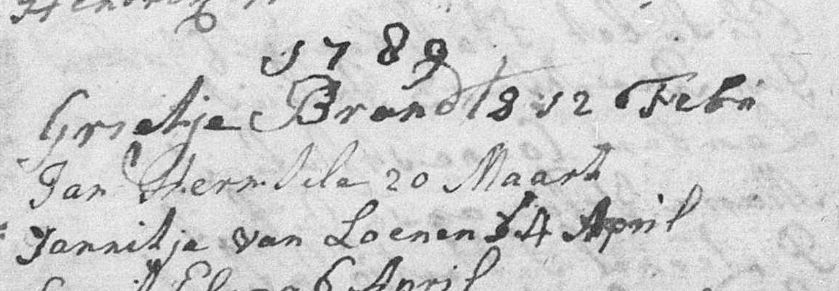 1789
Grietje Brandts 12 Febr
Jan 20 Maart
Jannitje van Loenen 14 April
6 April